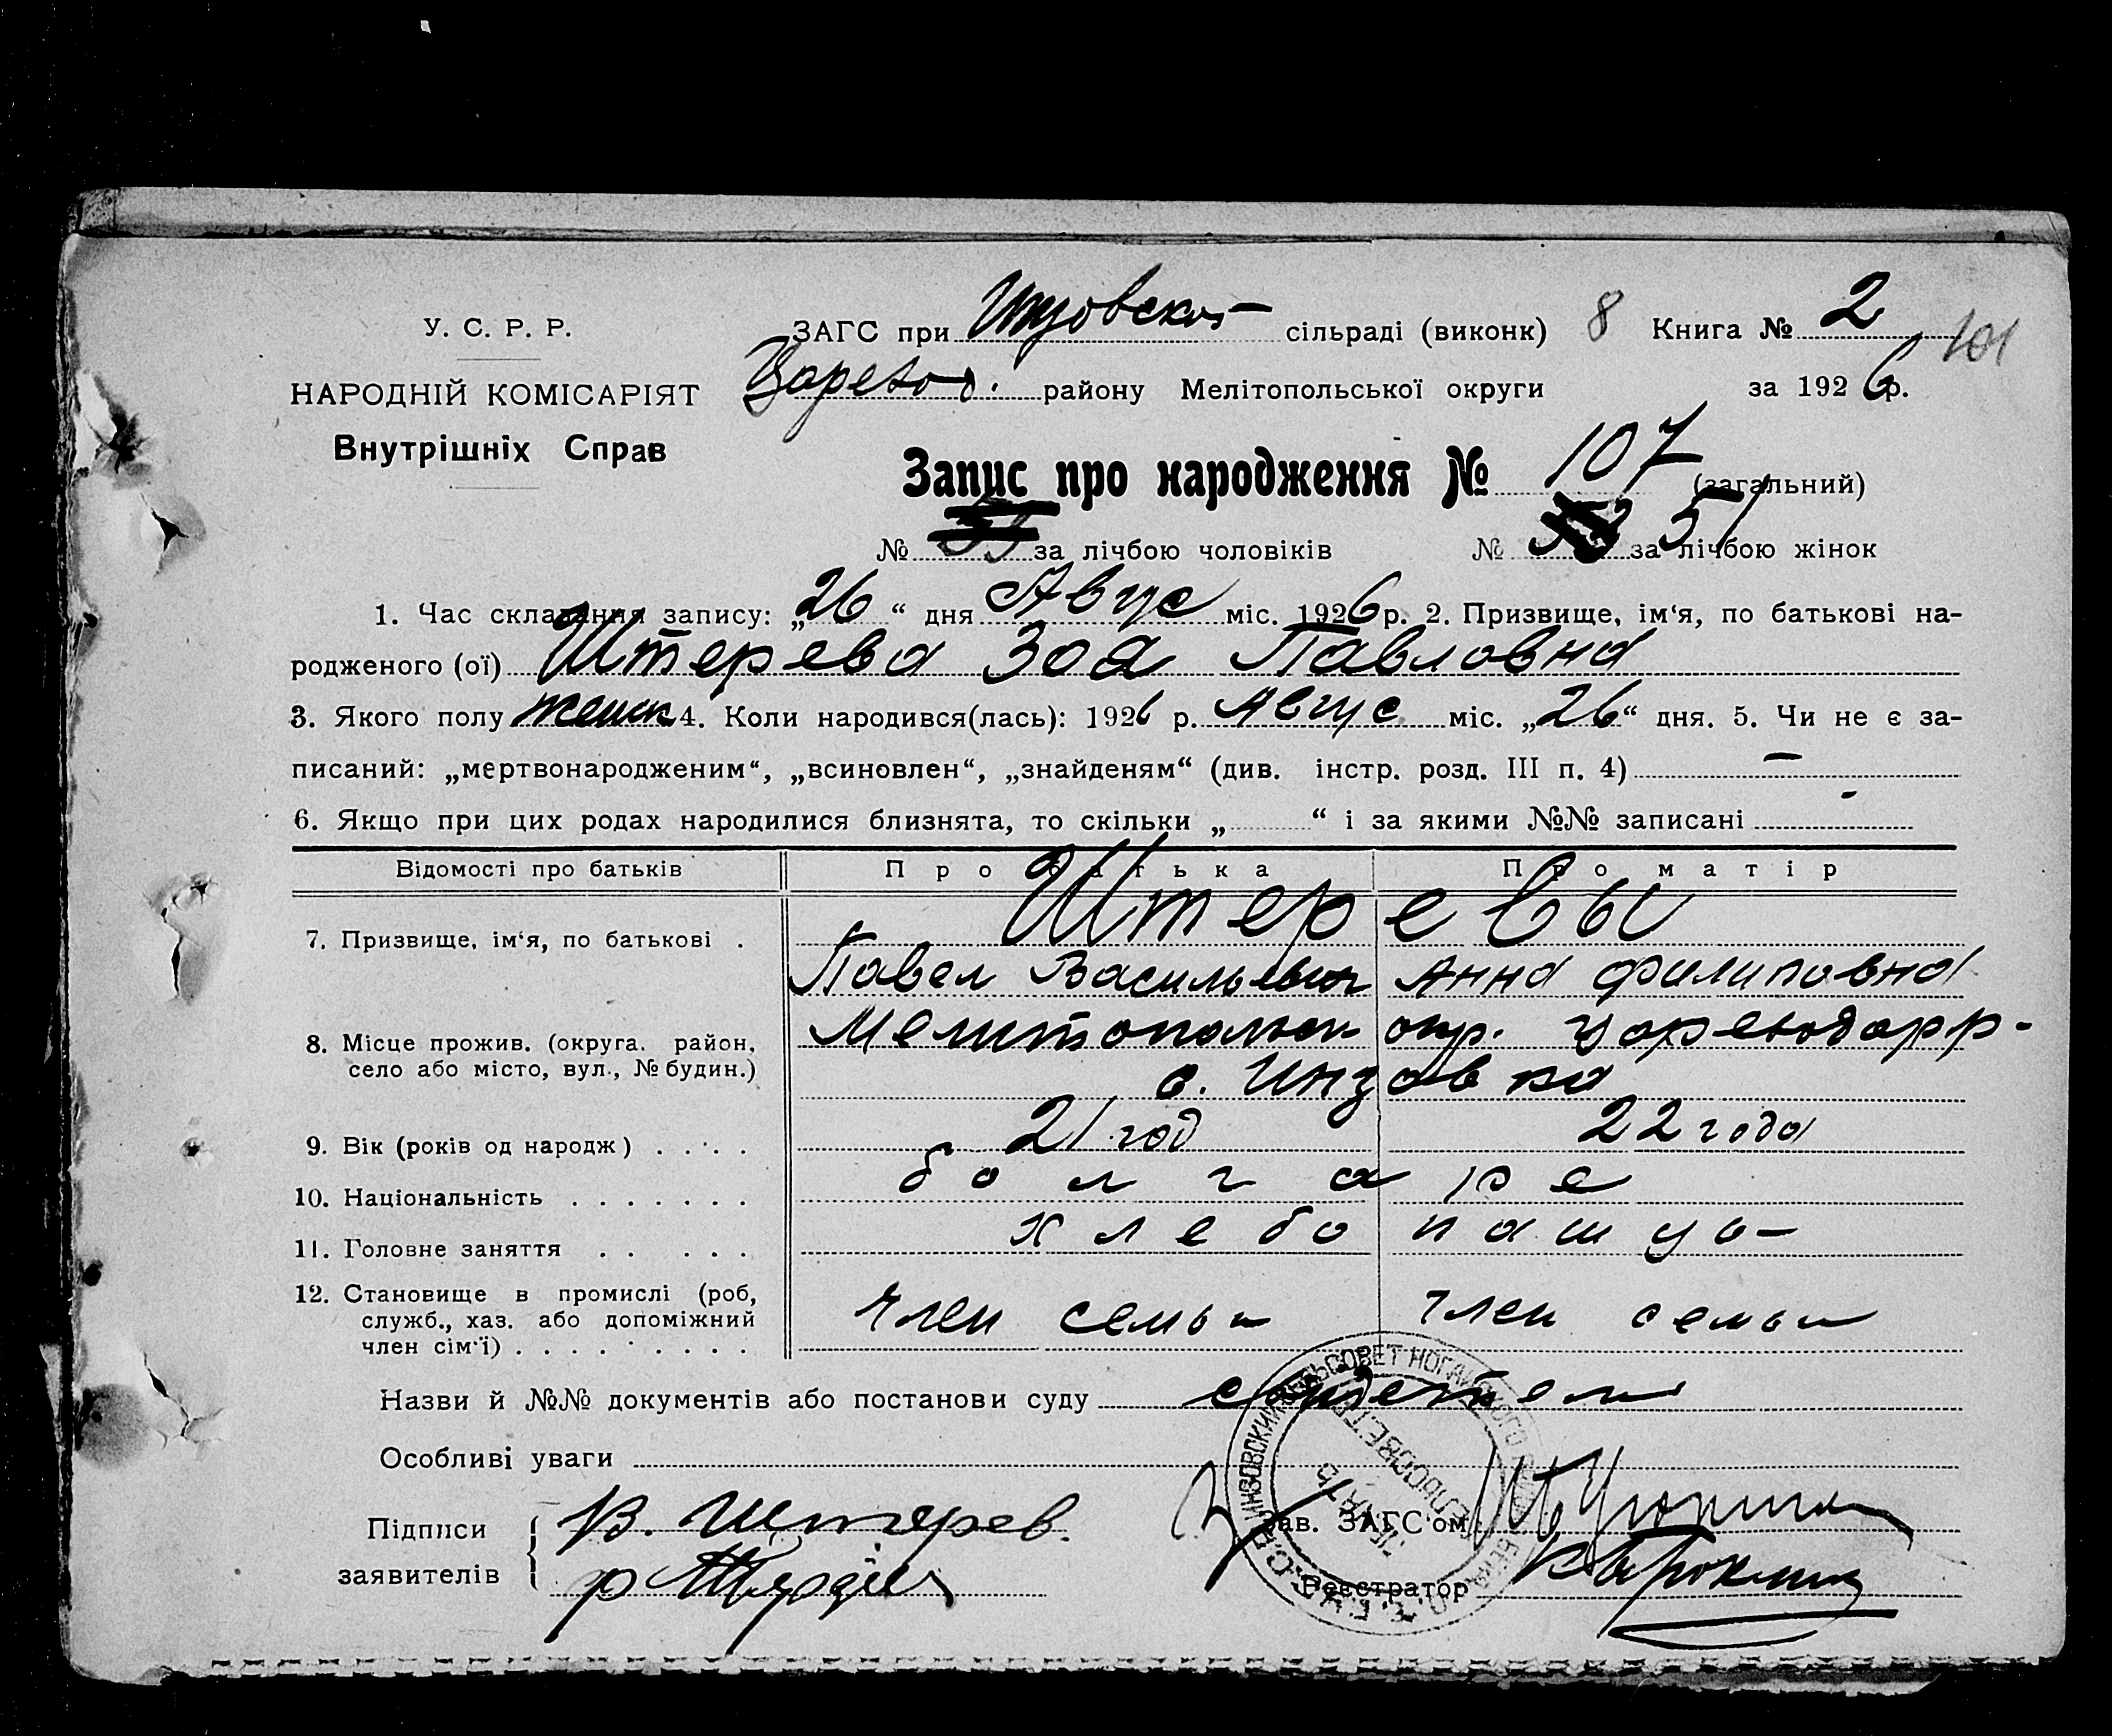 У. С. Р. Р.
НАРОДНІЙ КОМІСАРІЯТ
Внутрішніх Справ
ЗАГС при Инзовской сільраді (виконк) 8 Книга № 2 101
Царевод. району Мелітопольської округи за 1926 р.
Запис про народження № 107 (загальний)
№ за лічбою чоловіків № 51 за лічбою жінок
1. Час складання запису: „26“ дня Авгус міс. 1926 р. 2. Призвище, ім‘я, по батькові на-
родженого (ої) Штерева Зоя Павловна
3. Якого полу женск 4. Коли народився(лась): 1926 р. Авгус міс. „26“ дня. 5. Чи не є за-
писаний: „мертвонародженим“, „всиновлен“, „знайденям“ (див. інстр. розд. III п. 4) —
6. Якщо при цих родах народилися близнята, то скільки „ “ і за якими №№ записані -
Відомості про батьків Про батька Про матір
7. Призвище, ім‘я, по батькові . Штеревы
Павел Васильевич Анна Филиповна
8. Місце прожив. (округа. район, село або місто, вул., № будин.) Мелитопольск окр. Цареводарр-
с. Инзовка
9. Вік (років од народж) . . . . 21 год 22 года
10. Національність . . . . . . . болгаре
11. Головне заняття . . . . . хлебопашцы
12. Становище в промислі (роб,
служб., хаз. або допоміжний
член сім‘ї) . . . . . . . . . член семьи член семьи
Назви й №№ документів або постанови суду свидетели
Особливі уваги
Підписи заявителів В. Штерев.
Зав. ЗАГС‘ом
Реєстратор
ИНЗОВСКИЙ СЕЛЬСОВЕТ НОГАЙСКОГО